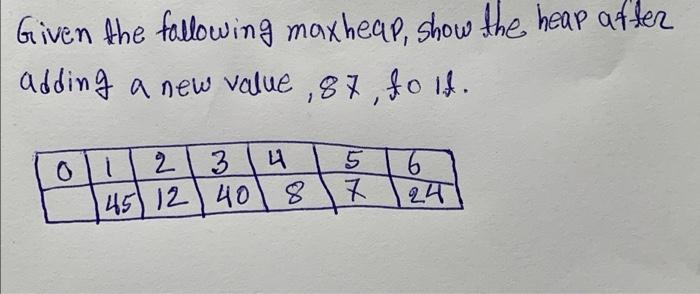 Given the fallowing maxheap, show the heap after
adding a new value, 87, to it.
0 1 2 3 4 5 6
45 12 40 8 7 24